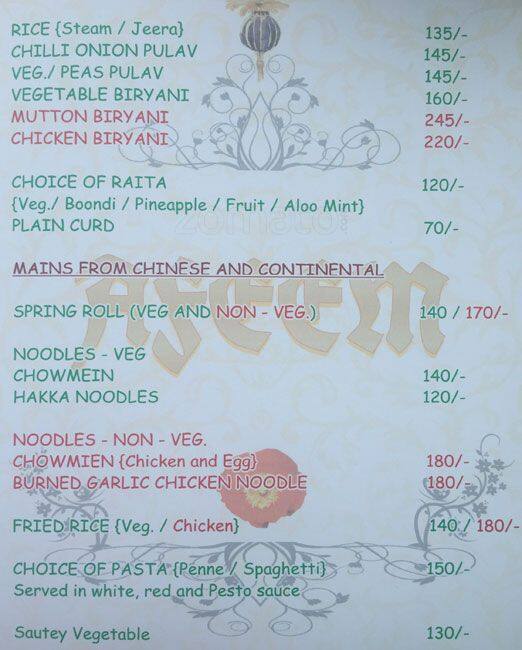 RICE {Steam / Jeera} 135/-
CHILLI ONION PULAV 145/-
VEG./ PEAS PULAV 145/-
VEGETABLE BIRYANI 160/-
MUTTON BIRYANI 245/-
CHICKEN BIRYANI 220/-
CHOICE OF RAITA 120/-
{Veg./ Boondi / Pineapple / Fruit / Aloo Mint}
zomato
PLAIN CURD 70/-
MAINS FROM CHINESE AND CONTINENTAL
AFEEM
SPRING ROLL (VEG AND NON - VEG.) 140 / 170/-
NOODLES - VEG
CHOWMEIN 140/-
HAKKA NOODLES 120/-
NOODLES - NON - VEG.
CHOWMIEN {Chicken and Egg} 180/-
BURNED GARLIC CHICKEN NOODLE 180/-
FRIED RICE {Veg. / Chicken} 140 / 180/-
CHOICE OF PASTA {Penne / Spaghetti} 150/-
Served in white, red and Pesto sauce
Sautey Vegetable 130/-